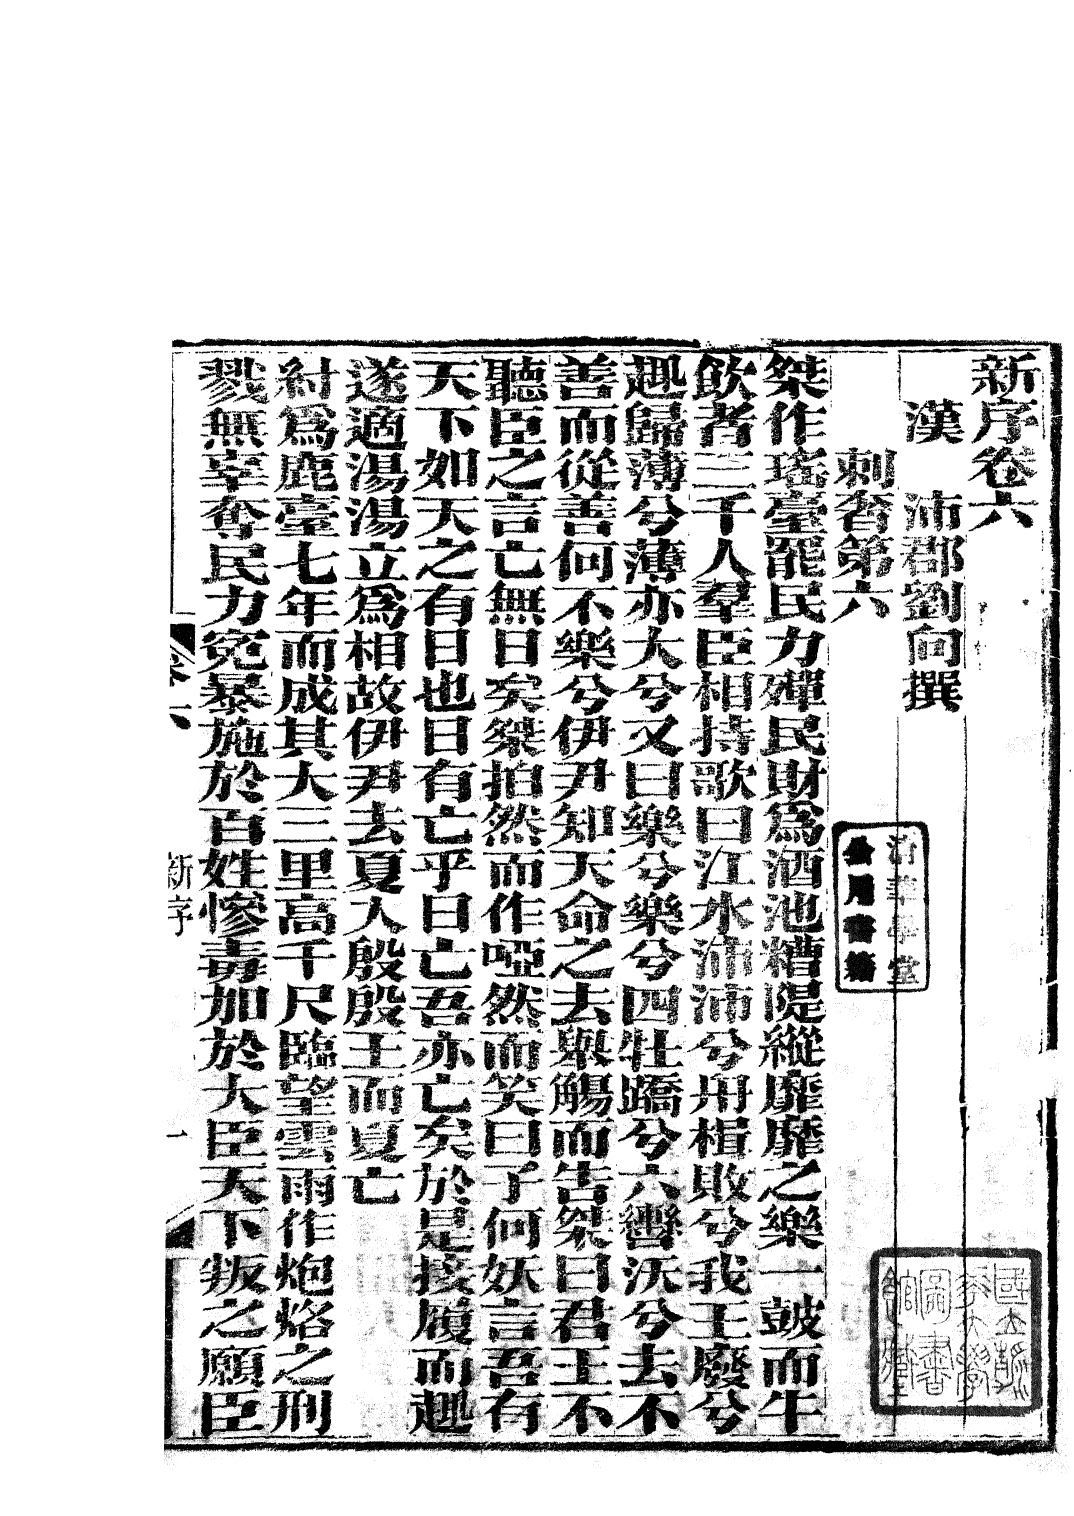 新序卷六
漢　沛郡劉向撰
刺奢第六
桀作瑤臺罷民力殫民財爲酒池糟隄縱靡靡之樂一鼓而牛
飲者三千人羣臣相持歌曰江水沛沛兮舟楫敗兮我王廢兮
趣歸薄兮薄亦大兮又曰樂兮樂兮四牡蹻兮六轡沃兮去不
善而從善何不樂兮伊尹知天命之去舉觴而告桀曰君王不
聽臣之言亡無日矣桀拍然而作啞然而笑曰子何妖言吾有
天下如天之有日也日有亡乎日亡吾亦亡矣於是接履而趣
遂適湯湯立爲相故伊尹去夏入殷殷王而夏亡
紂爲鹿臺七年而成其大三里高千尺臨望雲雨作炮烙之刑
戮無辜奪民力寃暴施於百姓慘毒加於大臣天下叛之願臣
卷六
新序
一
清華學堂
公用書籍
國立清華大學
圖書館藏